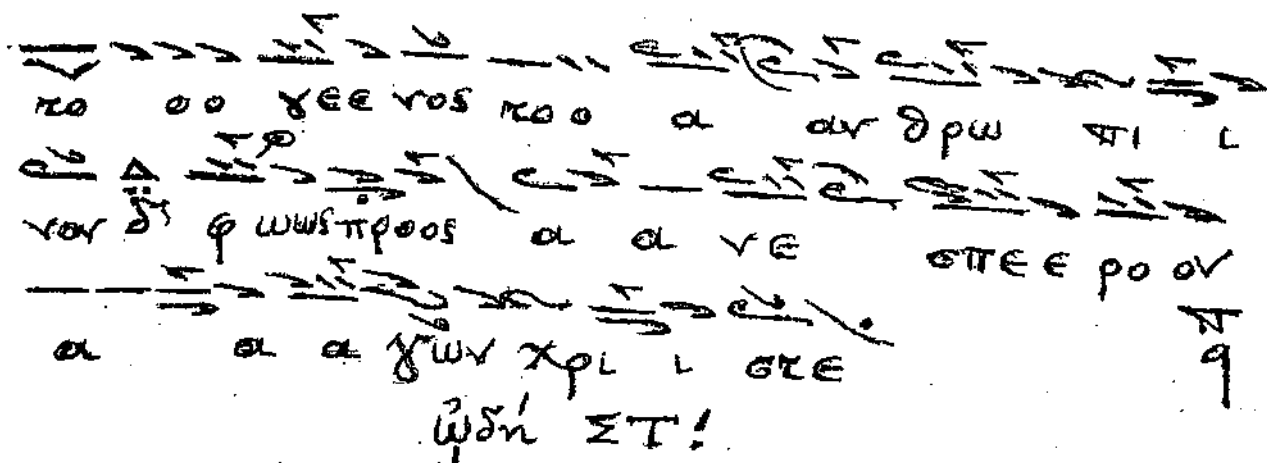 το οο γεε νος το ο α αν θρω πι ι
νον Δ φ ωως προος α α νε σπεε ρο ον
α α α γων χρι ι στε π q
ᾠδή ΣΤ!